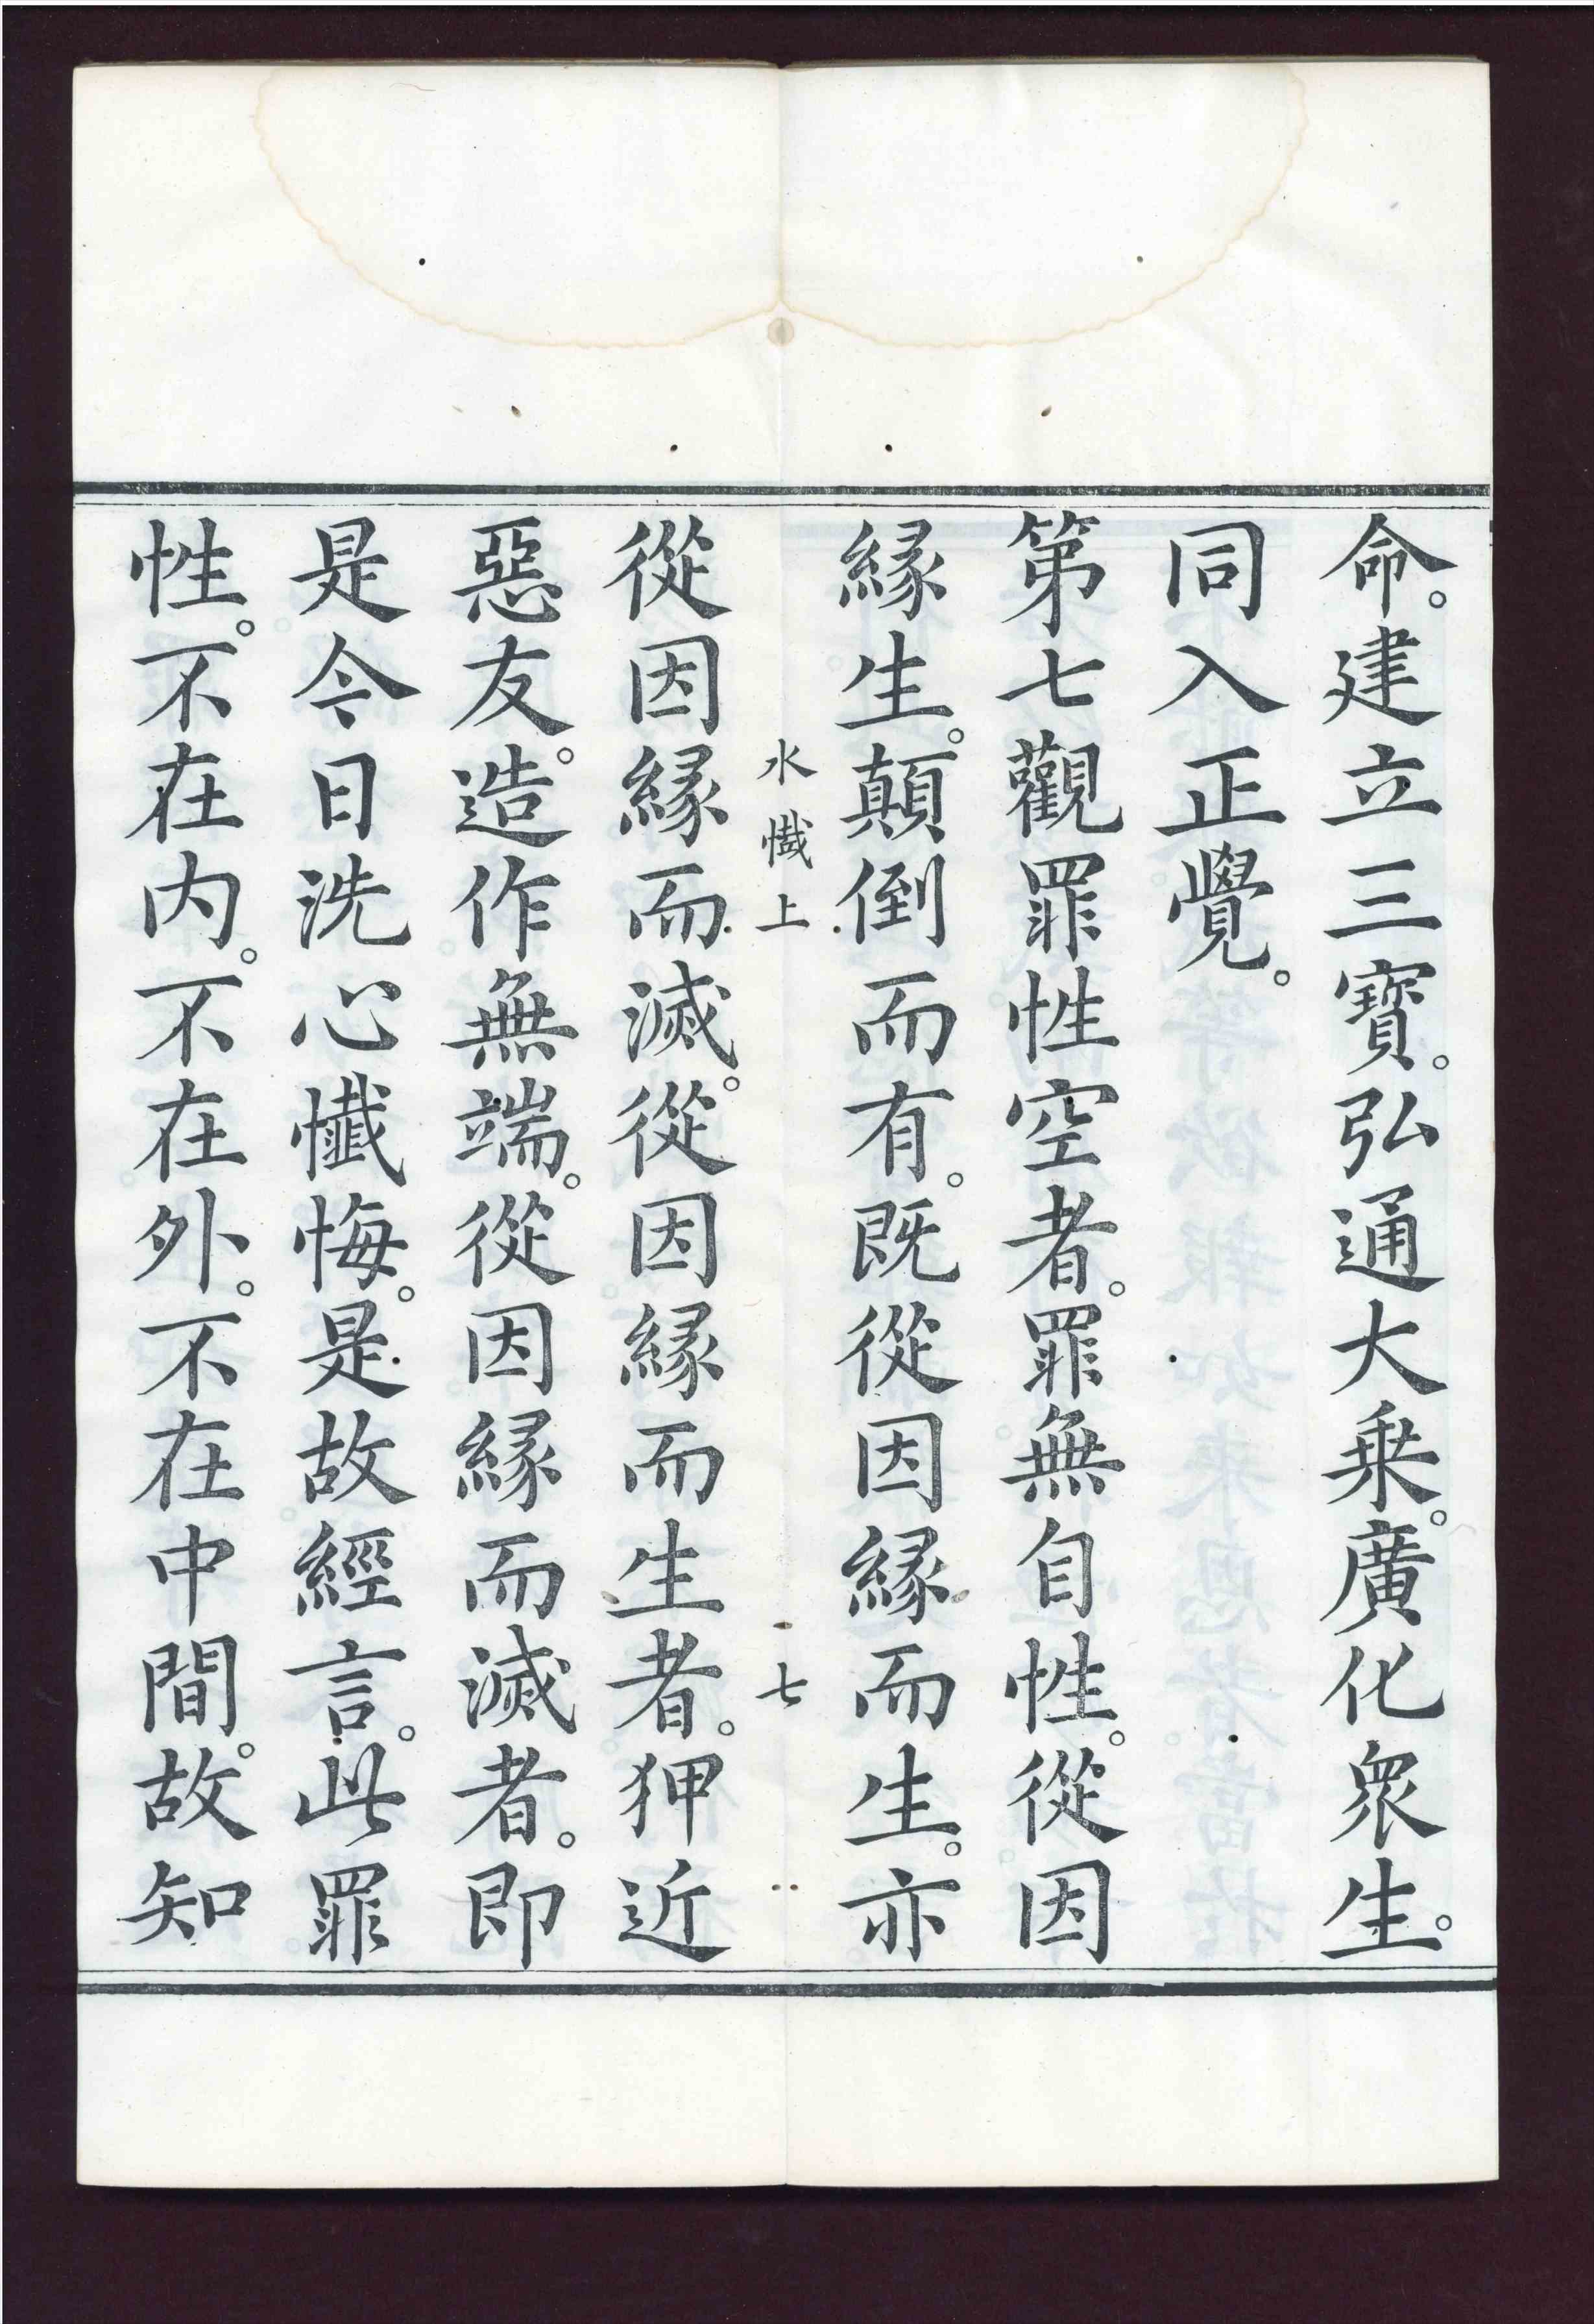 命。建立三寶。弘通大乗。廣化衆生。
同入正覺。
第七觀罪性空者。罪無自性。從因
縁生。顛倒而有。既從因縁而生。亦
水懺上 七
從因縁而滅。從因縁而生者。狎近
惡友。造作無端。從因縁而滅者。即
是今日洗心懺悔。是故經言。此罪
性。不在内。不在外。不在中間。故知